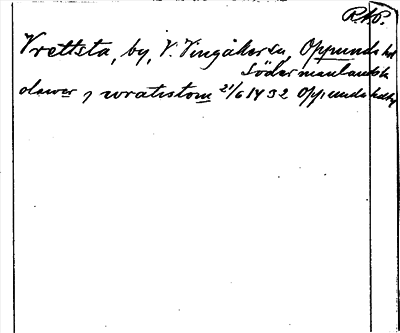 R.A.P.
Vrettsta, by, V. Vingåker sn, Oppunda hd
Södermanlands lä
olawer j wratistom 21/6 1432 Oppunda hdtg